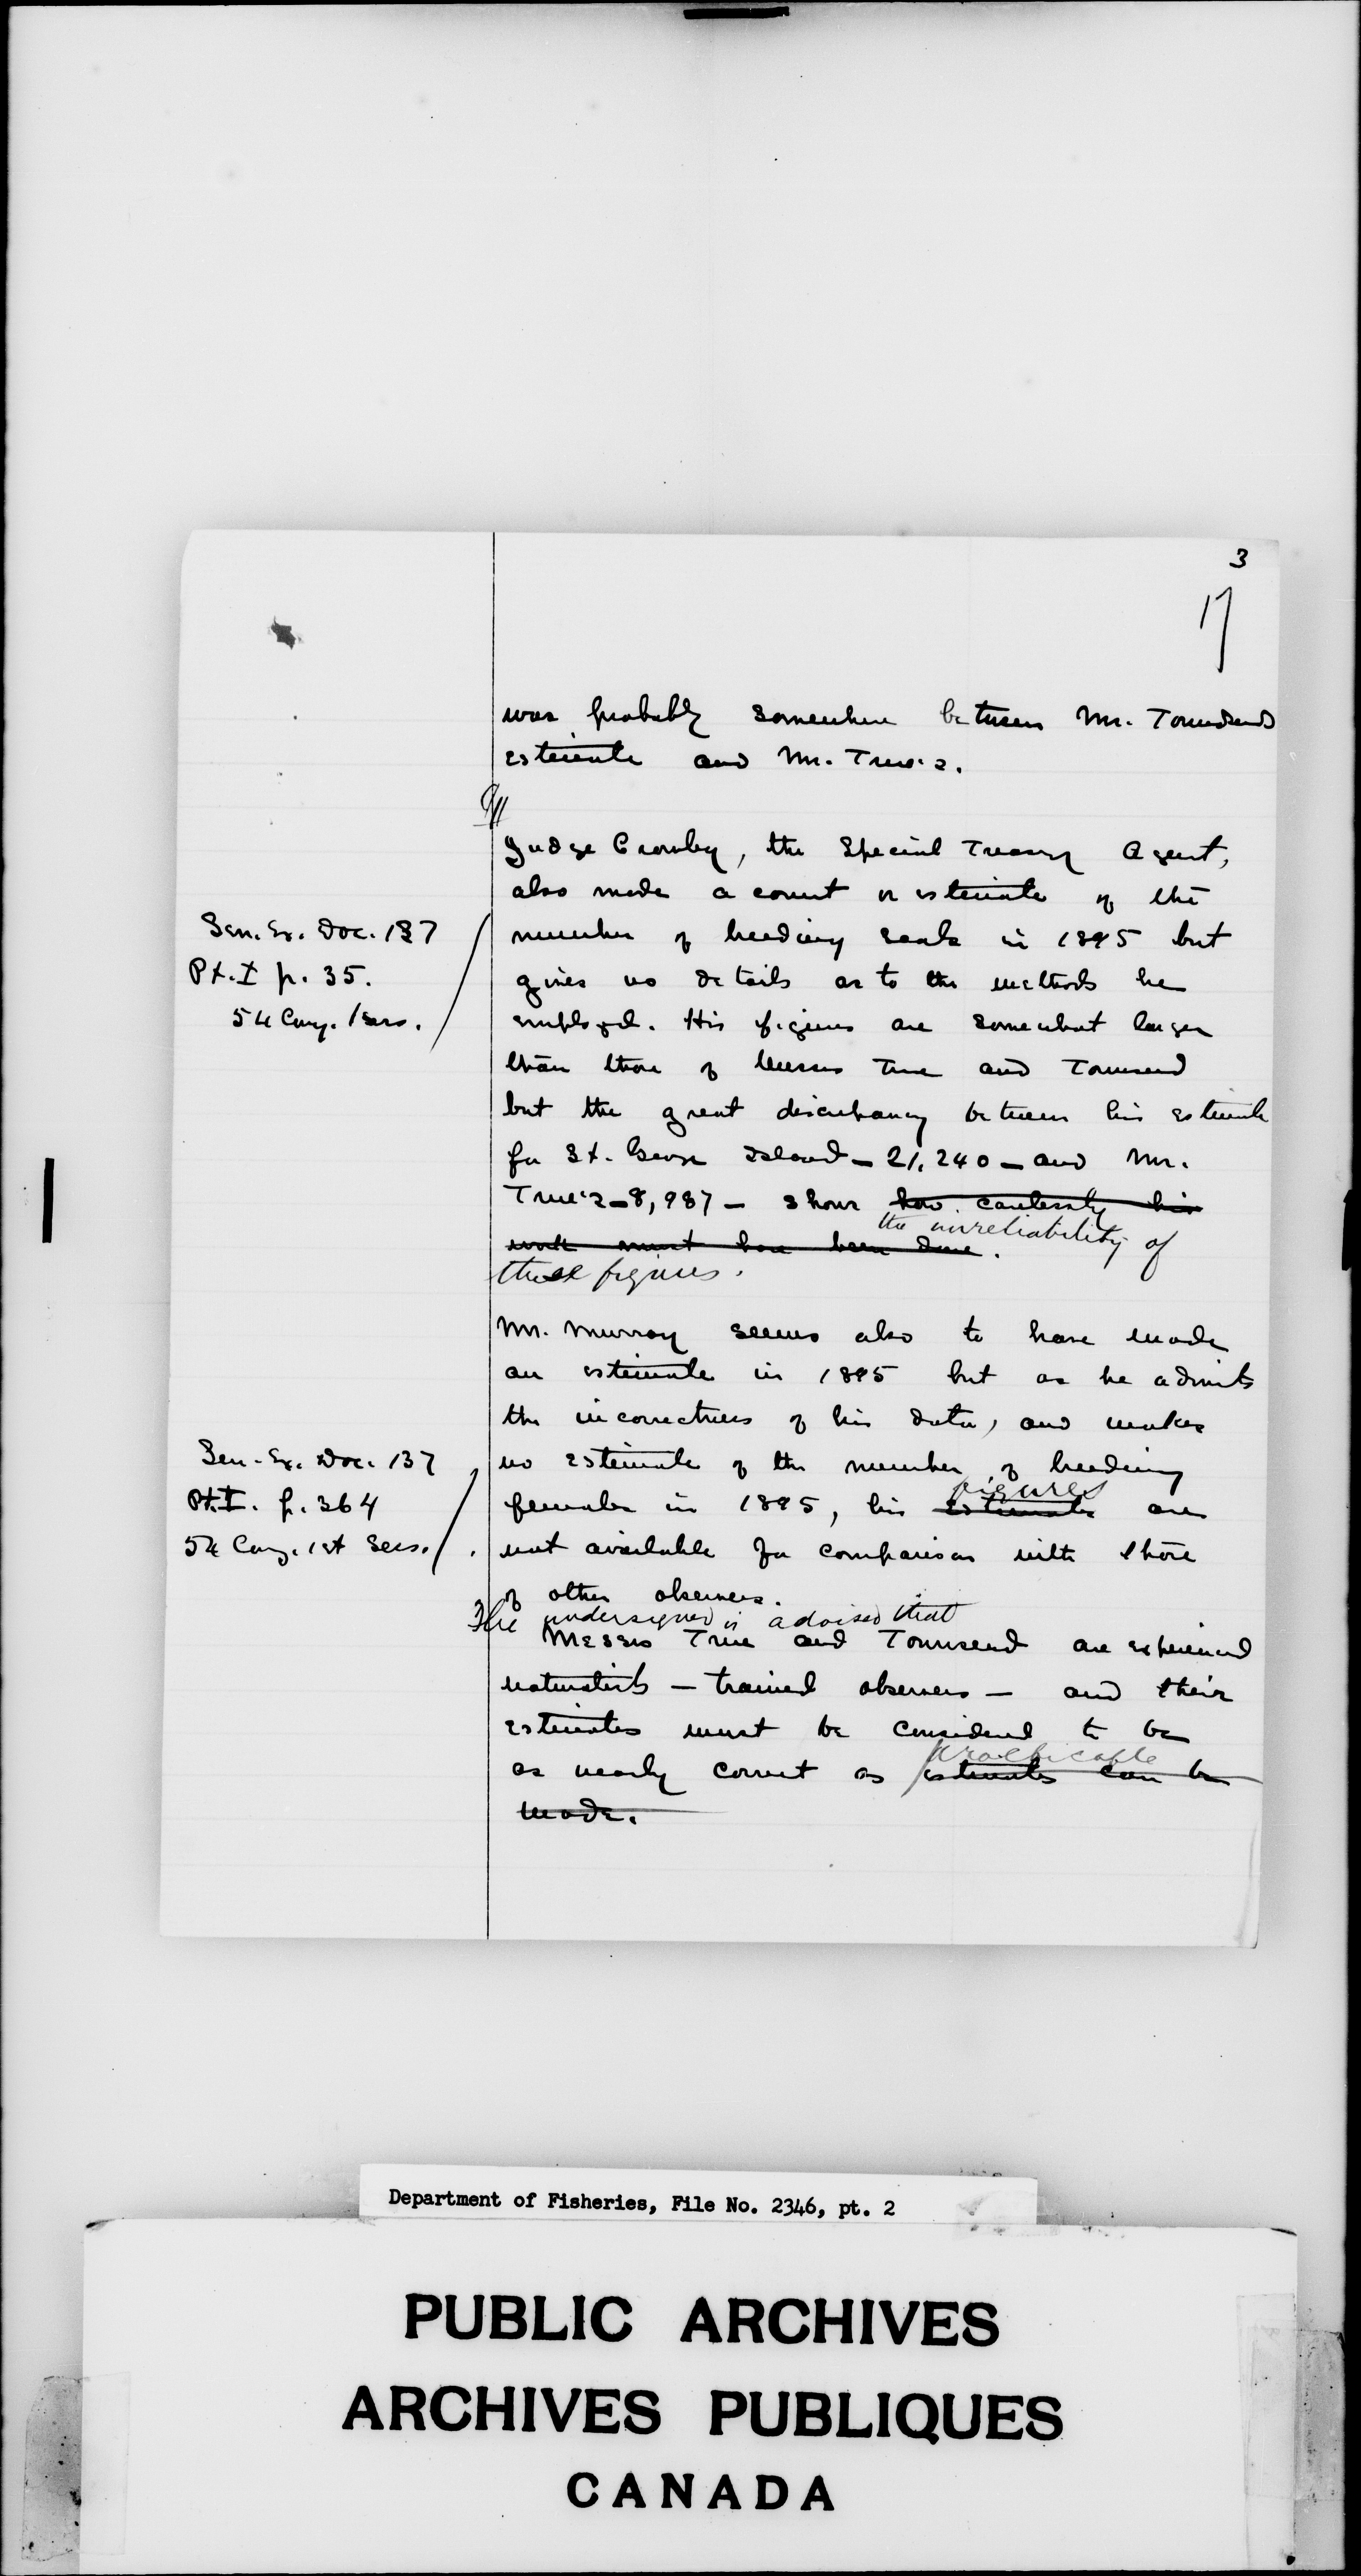 3
17
was probably somewhere between Mr. Townsend's
estimate and Mr. True's.
Judge Crowley, the Special Treasury Agent,
also made a count or estimate of the
Sen. Ex. Doc. 137
number of breeding seals in 1895 but
Pt. I p. 35.
gives no details as to the methods he
54 Cong. 1 Sess.
employed. His figures are somewhat larger
than those of Messrs True and Townsend
but the great discrepancy between his estimate
for St. George Island — 21,240 — and Mr.
True's — 8,987 — shows how carelessly his
the unreliability of
work must have been done.
these figures.
Mr. Murray seems also to have made
an estimate in 1895 but as he admits
the incorrectness of his data, and makes
Sen. Ex. Doc. 137
no estimate of the number of breeding
figures
Pt. I. p. 364
females in 1895, his estimates are
54 Cong. 1st Sess.
not available for comparison with those
of other observers.
The undersigned is advised that
Messrs True and Townsend are experienced
naturalists — trained observers — and their
estimates must be considered to be
practicable
as nearly correct as estimates can be
made.
Department of Fisheries, File No. 2346, pt. 2
PUBLIC ARCHIVES
ARCHIVES PUBLIQUES
CANADA